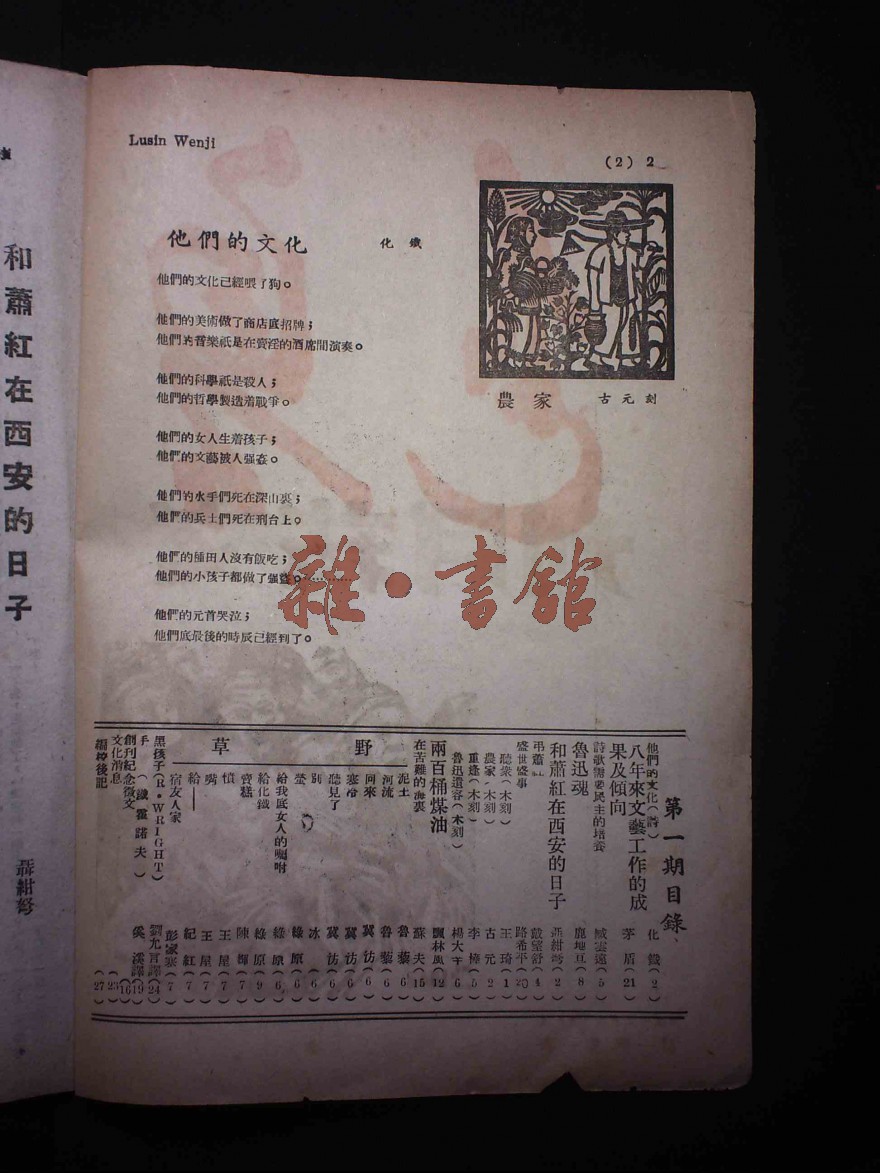 Lusin Wenji
(2) 2
他們的文化
化 鐵
他們的文化已經喂了狗。
他們的美術做了商店底招牌；
他們的音樂祇是在賣淫的酒席間演奏。
他們的科學祇是殺人；
他們的哲學製造着戰爭。
他們的女人生着孩子；
他們的文藝被人强姦。
他們的水手們死在深山裏；
他們的兵士們死在刑台上。
他們的種田人沒有飯吃；
他們的小孩子都做了强盜。…………
他們的元首哭泣；
他們底最後的時辰已經到了。
農家
古元刻
雜·書館
第一期目錄
他們的文化(詩) 化 鐵(2)
八年來文藝工作的成果及傾向 茅 盾(21)
詩歌需要民主的培養 臧雲遠(5)
魯迅魂 鹿地亘(8)
和蕭紅在西安的日子 聶紺弩(2)
弔蕭紅 戴望舒(4)
盛世盛事 路希平(20)
聽衆(木刻) 王 琦(1)
農家(木刻) 古 元(2)
重逢(木刻) 李 樺(5)
魯迅遺容(木刻) 楊大(6)
兩百桶煤油 飄林(12)
在苦難的海裏 蘇 夫(15)
野草
泥土 魯 藜(6)
河流 魯 藜(6)
回來 冀 汸(6)
寒冷 冀 汸(6)
聽見了 冀 汸(6)
別 冰(6)
螢 綠 原(6)
給我底女人的囑咐 綠 原(6)
給化鐵 綠 原(9)
賣糕 陳 輝(7)
憤 王 屋(7)
嘴 王 屋(7)
給—— 紀 紅(7)
宿友人家 彭家寨(7)
黑孩子(R·WRIGHT) 劉允言譯(24)
手(鐵霍諾夫) 奚 溪譯(19)
創刊紀念徵文(16)
文化消息(23)
編校後記(27)
和蕭紅在西安的日子
聶紺弩